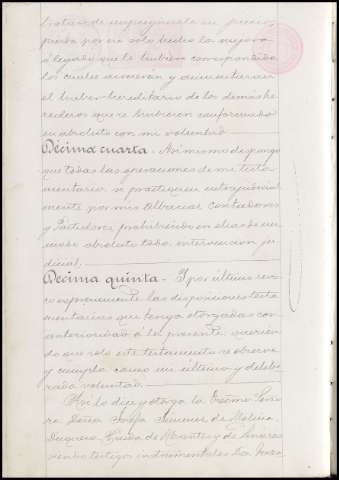 tratare de impugnarle en
pierda por ese solo hecho la mejora
ó legado que le hubiera correspondido
los cuales acrecerán y aumentarán
el haber hereditario de los demás he
rederos que se hubieren conformado
en absoluto con mi voluntad
Décima cuarta. Asi mismo dispongo
que todas las operaciones de mi testa
mentaria se practiquen extrajudicial
mente por mis Albaceas Contadores
y Partidores prohibiendo en ellas de un
modo absoluto toda intervencion ju
dicial.
Décima quinta. Y por último revo
co expresamente las disposiciones testa
mentarias que tenga otorgadas con
anterioridad á la presente querien
do que solo este testamento se observe
y cumpla como mi última y delibe
rada voluntad
Asi lo dice y otorga la Excma Seño
ra Doña Josefa Jimenez de Molina
Duquesa Viuda de Abrantes y de Linares
siendo testigos instrumentales